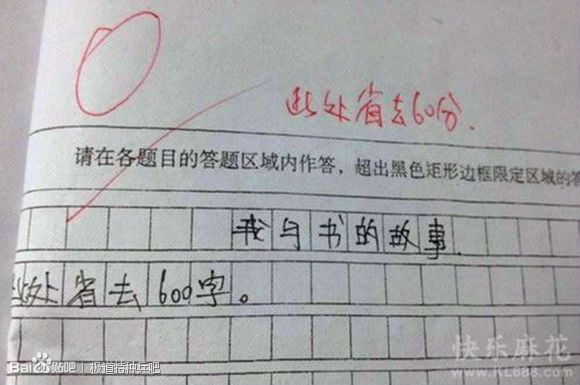 此处省去60分.
请在各题目的答题区域内作答，超出黑色矩形边框限定区域的答
我与书的故事.
此处省去600字。
Baidu贴吧 | 极道特种兵吧
快乐麻花
www.KL688.com